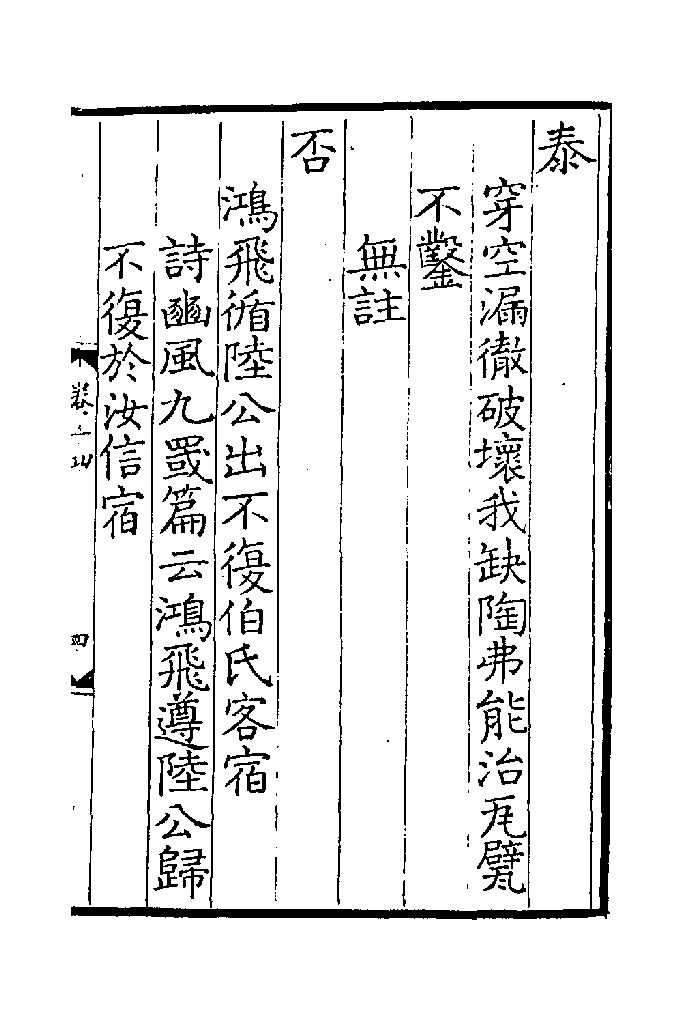 泰
穿空漏徹破壞我缺陶弗能治瓦甓
不鑿
無註
否
鴻飛循陸公出不復伯氏客宿
詩豳風九罭篇云鴻飛遵陸公歸
不復於汝信宿
四